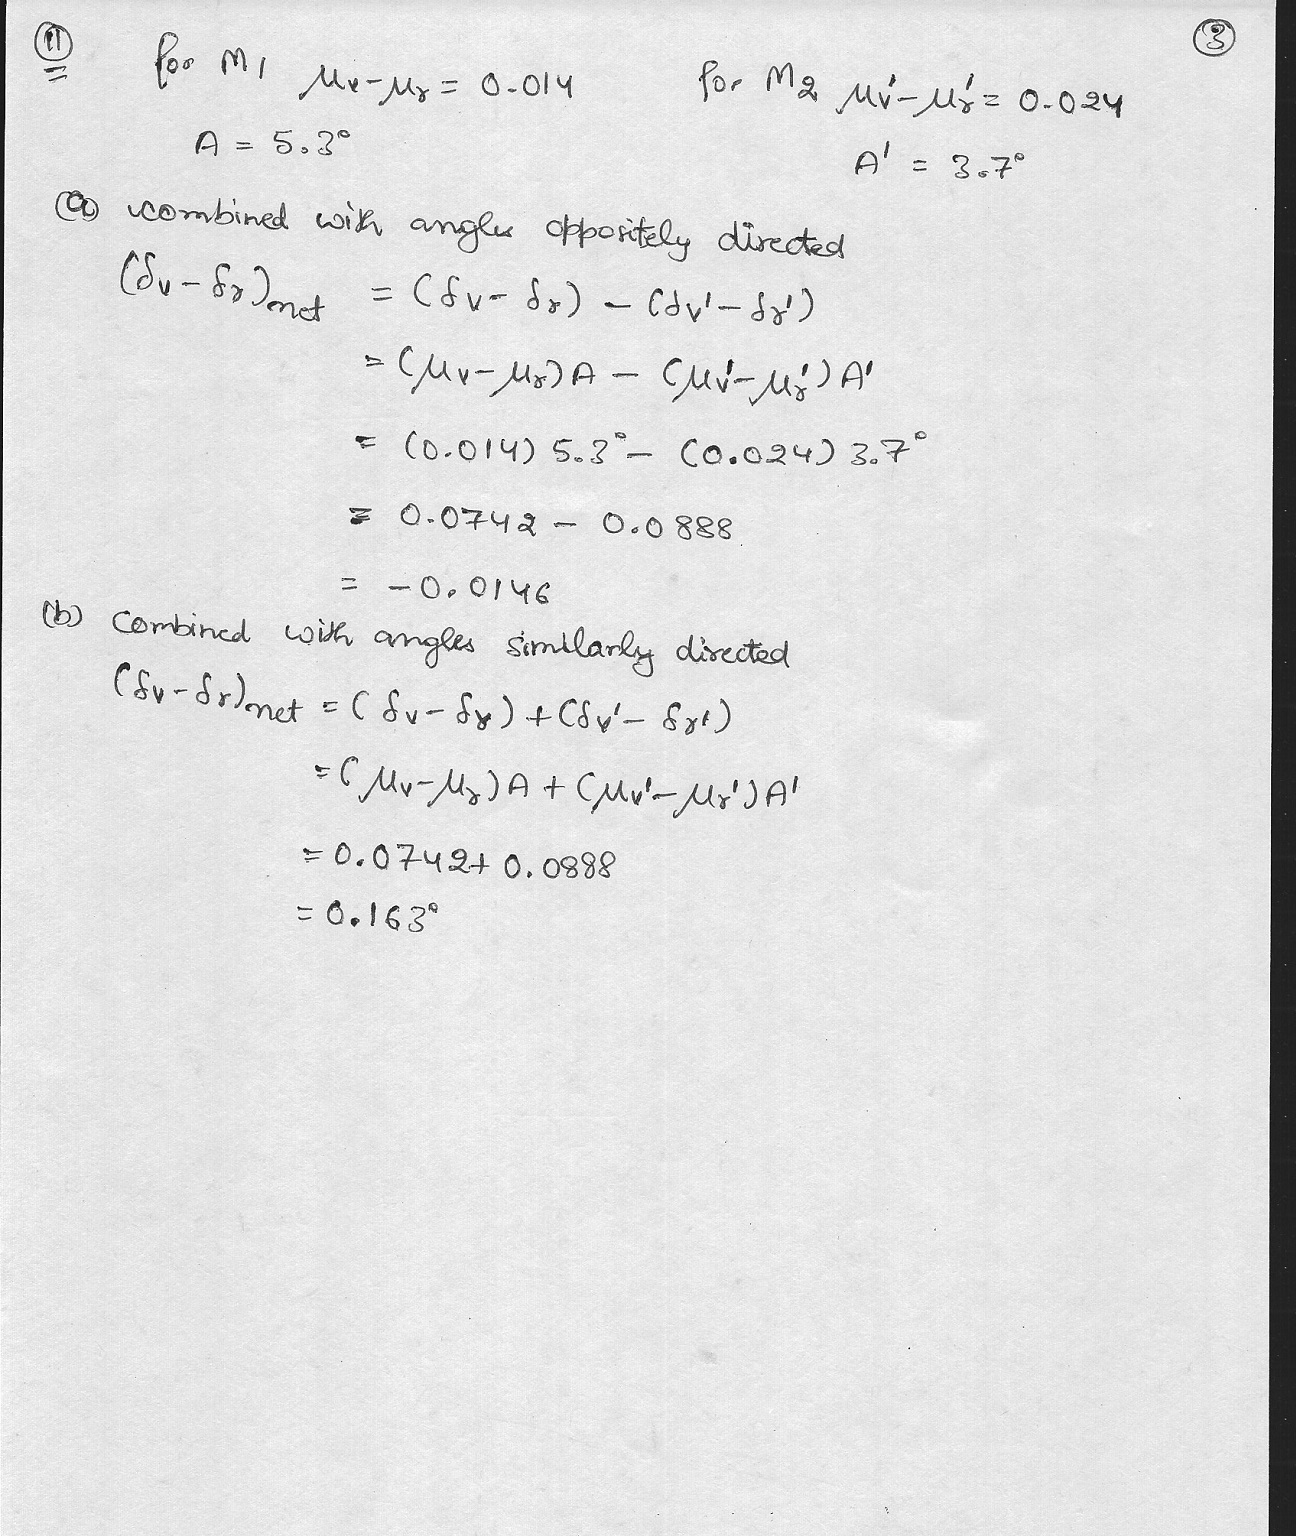 11 for M1 μv-μr = 0.014 for M2 μv'-μr' = 0.024 3
A = 5.3° A' = 3.7°
(a) combined with angles oppositely directed
(δv-δr)net = (δv-δr) - (δv'-δr')
= (μv-μr)A - (μv'-μr')A'
= (0.014) 5.3° - (0.024) 3.7°
= 0.0742 - 0.0888
= -0.0146
(b) combined with angles similarly directed
(δv-δr)net = (δv-δr) + (δv'-δr')
= (μv-μr)A + (μv'-μr')A'
= 0.0742 + 0.0888
= 0.163°